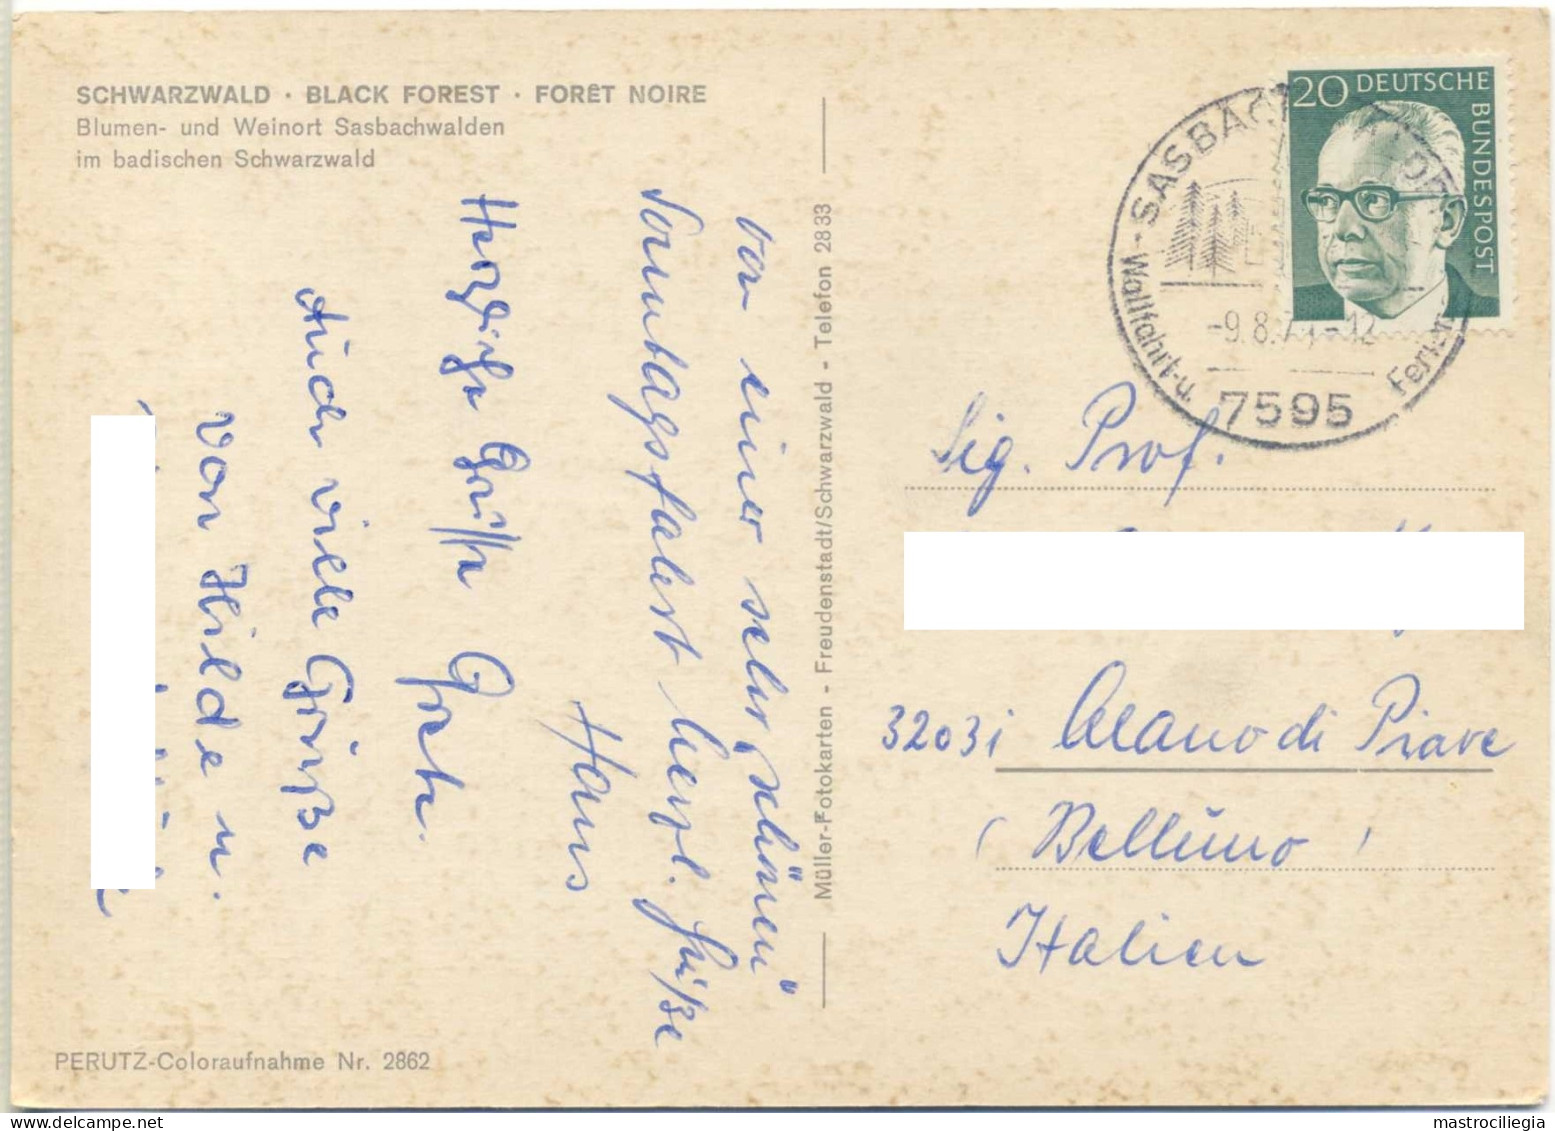 SCHWARZWALD · BLACK FOREST · FORÊT NOIRE
Blumen- und Weinort Sasbachwalden
im badischen Schwarzwald
von einer sehr "schönen"
Sonntagsfahrt herzl. Grüße
Hans
Herzliche Grüsse Greta.
Auch viele Grüße
von Hilde u.
Müller-Fotokarten - Freudenstadt/Schwarzwald - Telefon 2833
20 DEUTSCHE
BUNDESPOST
-9.8.7
7595
Wallfahrt-u.
Sig. Prof.
32031 Alano di Piave
(Belluno)
Italien
PERUTZ-Coloraufnahme Nr. 2862
mastrociliegia